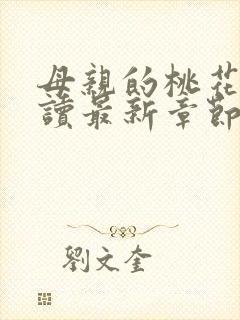 母親的桃花
讀最新章節
劉文奎